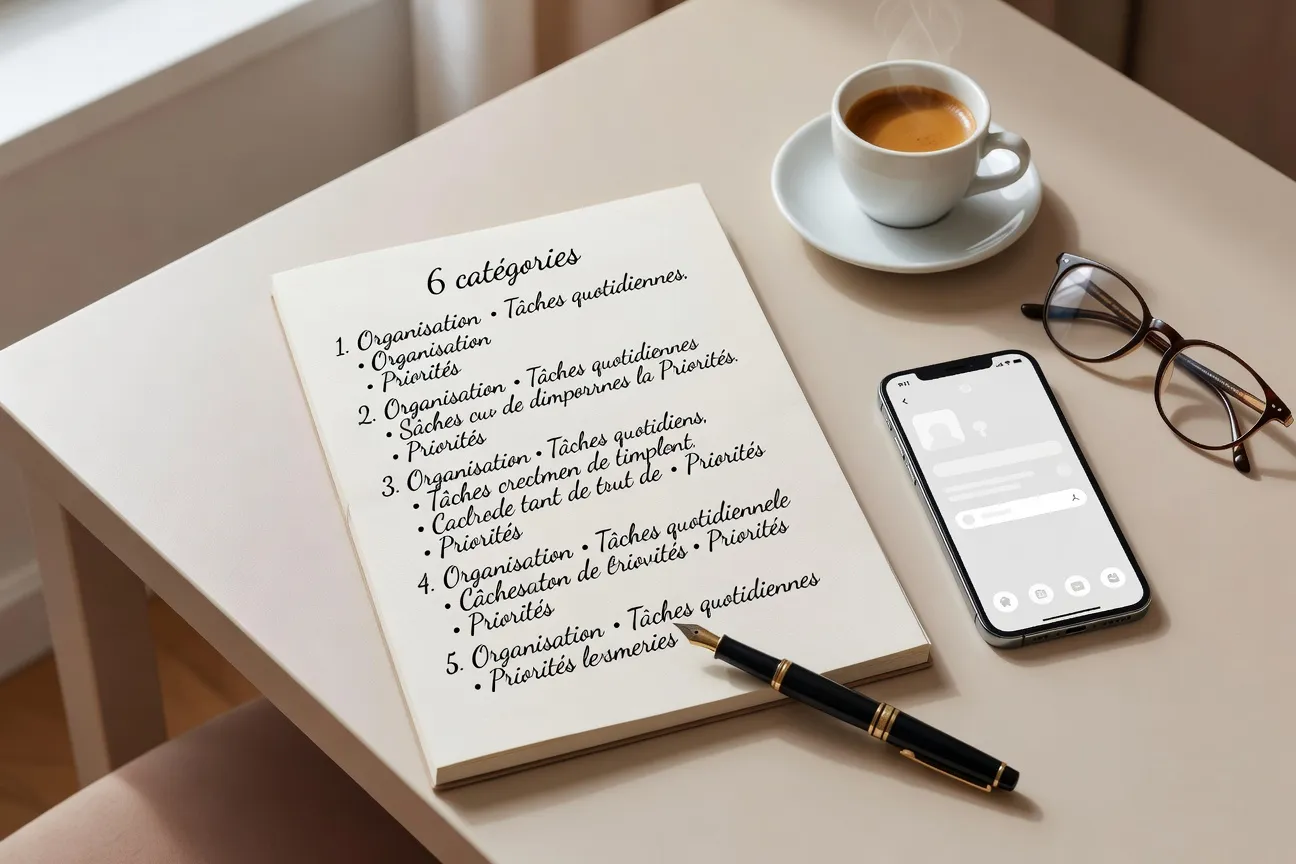 6 catégories
1. Organisation • Tâches quotidiennes.
• Organisation
• Priorités
2. Organisation • Tâches quotidiennes
• Sâches cuv de dimpornnes la Priorités.
• Priorités
3. Organisation • Tâches quotidiens,
• Tâches crectmen de timplent.
• Caclrede tant de trut de • Priorités
• Priorités
4. Organisation • Tâches quotidiennele
• Câchesaton de Criovités • Priorités
• Priorités
5. Organisation • Tâches quotidiennes
• Priorités lesmeries